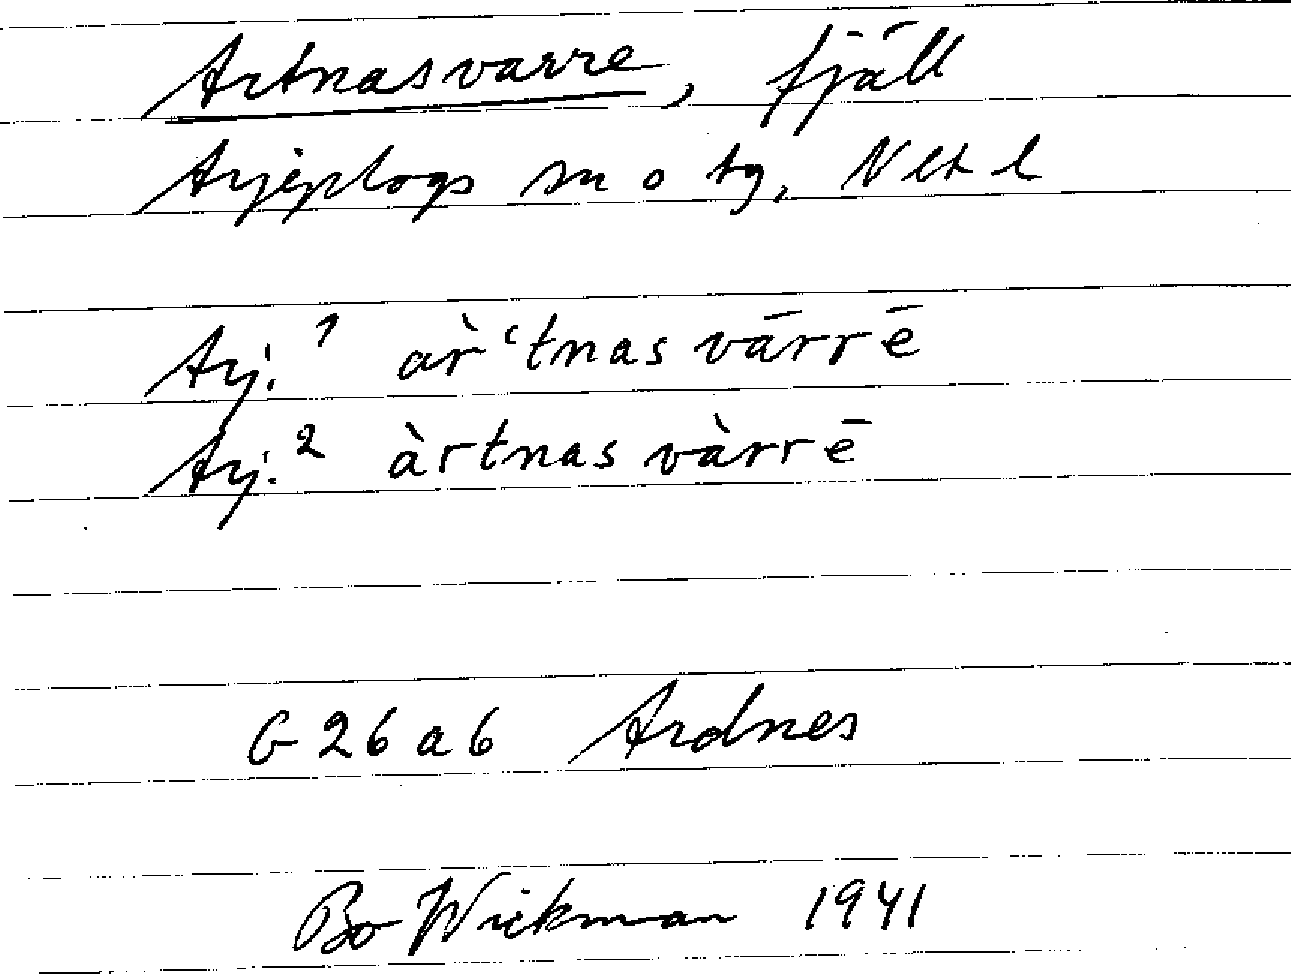 Artnasvarre, fjäll
Arjeplogs sn o tg, Nbt l
Arj.¹ ar̀ʿtnas vārrē
Arj.² àrtnas vàrrē
G 26 a 6 Ardnes
Bo Wickman 1941